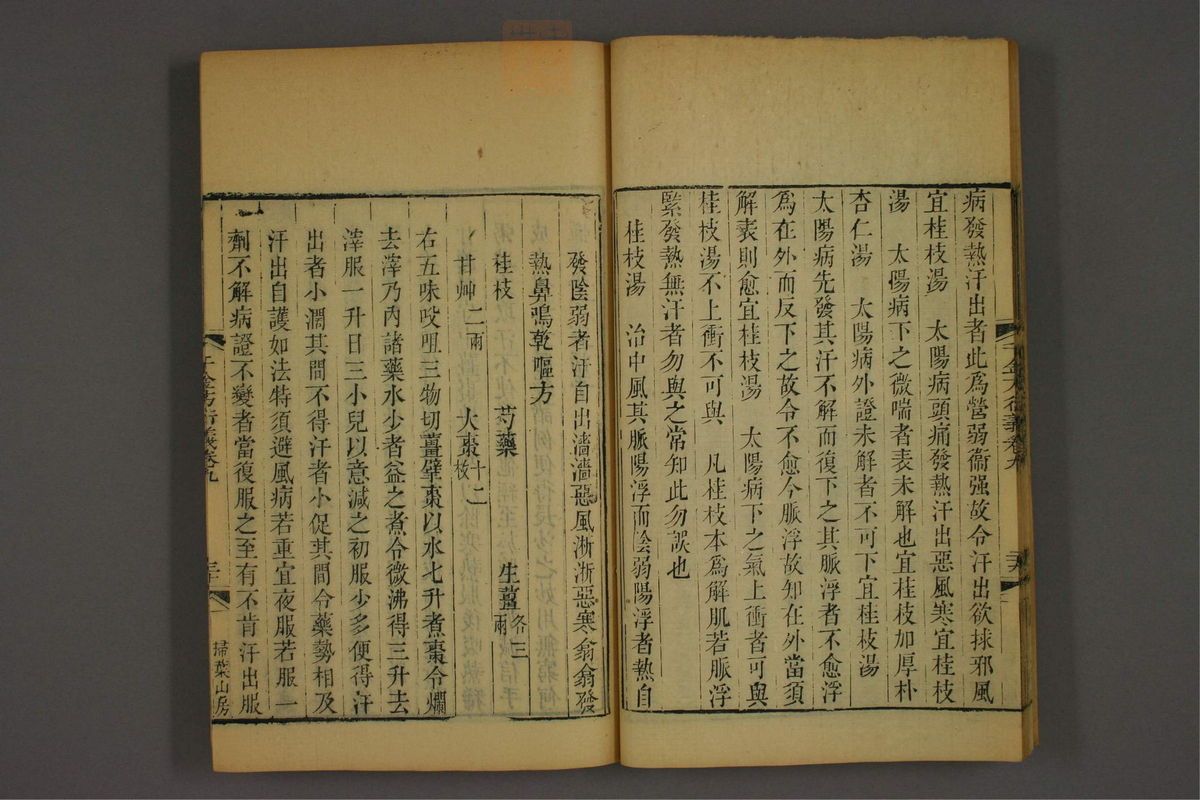 病發熱汗出者此為營弱衞强故令汗出欲捄邪風
宜桂枝湯　太陽病頭痛發熱汗出惡風寒宜桂枝
湯　太陽病下之微喘者表未解也宜桂枝加厚朴
杏仁湯　太陽病外證未解者不可下宜桂枝湯
太陽病先發其汗不解而復下之其脈浮者不愈浮
為在外而反下之故令不愈今脈浮故知在外當須
解表則愈宜桂枝湯　太陽病下之氣上衝者可與
桂枝湯不上衝不可與　凡桂枝本為解肌若脈浮
緊發熱無汗者勿與之常知此勿誤也
桂枝湯　治中風其脈陽浮而陰弱陽浮者熱自
發陰弱者汗自出濇濇惡風淅淅惡寒翕翕發
熱鼻鳴乾嘔方
桂枝　芍藥　生薑各三兩
甘艸二兩　大棗十二枚
右五味㕮咀三物切薑擘棗以水七升煮棗令爛
去滓乃內諸藥水少者益之煮令微沸得三升去
滓服一升日三小兒以意減之初服少多便得汗
出者小濶其間不得汗者小促其間令藥勢相及
汗出自護如法特須避風病若重宜夜服若服一
劑不解病證不變者當復服之至有不肯汗出服
千金方衍義卷九
掃葉山房